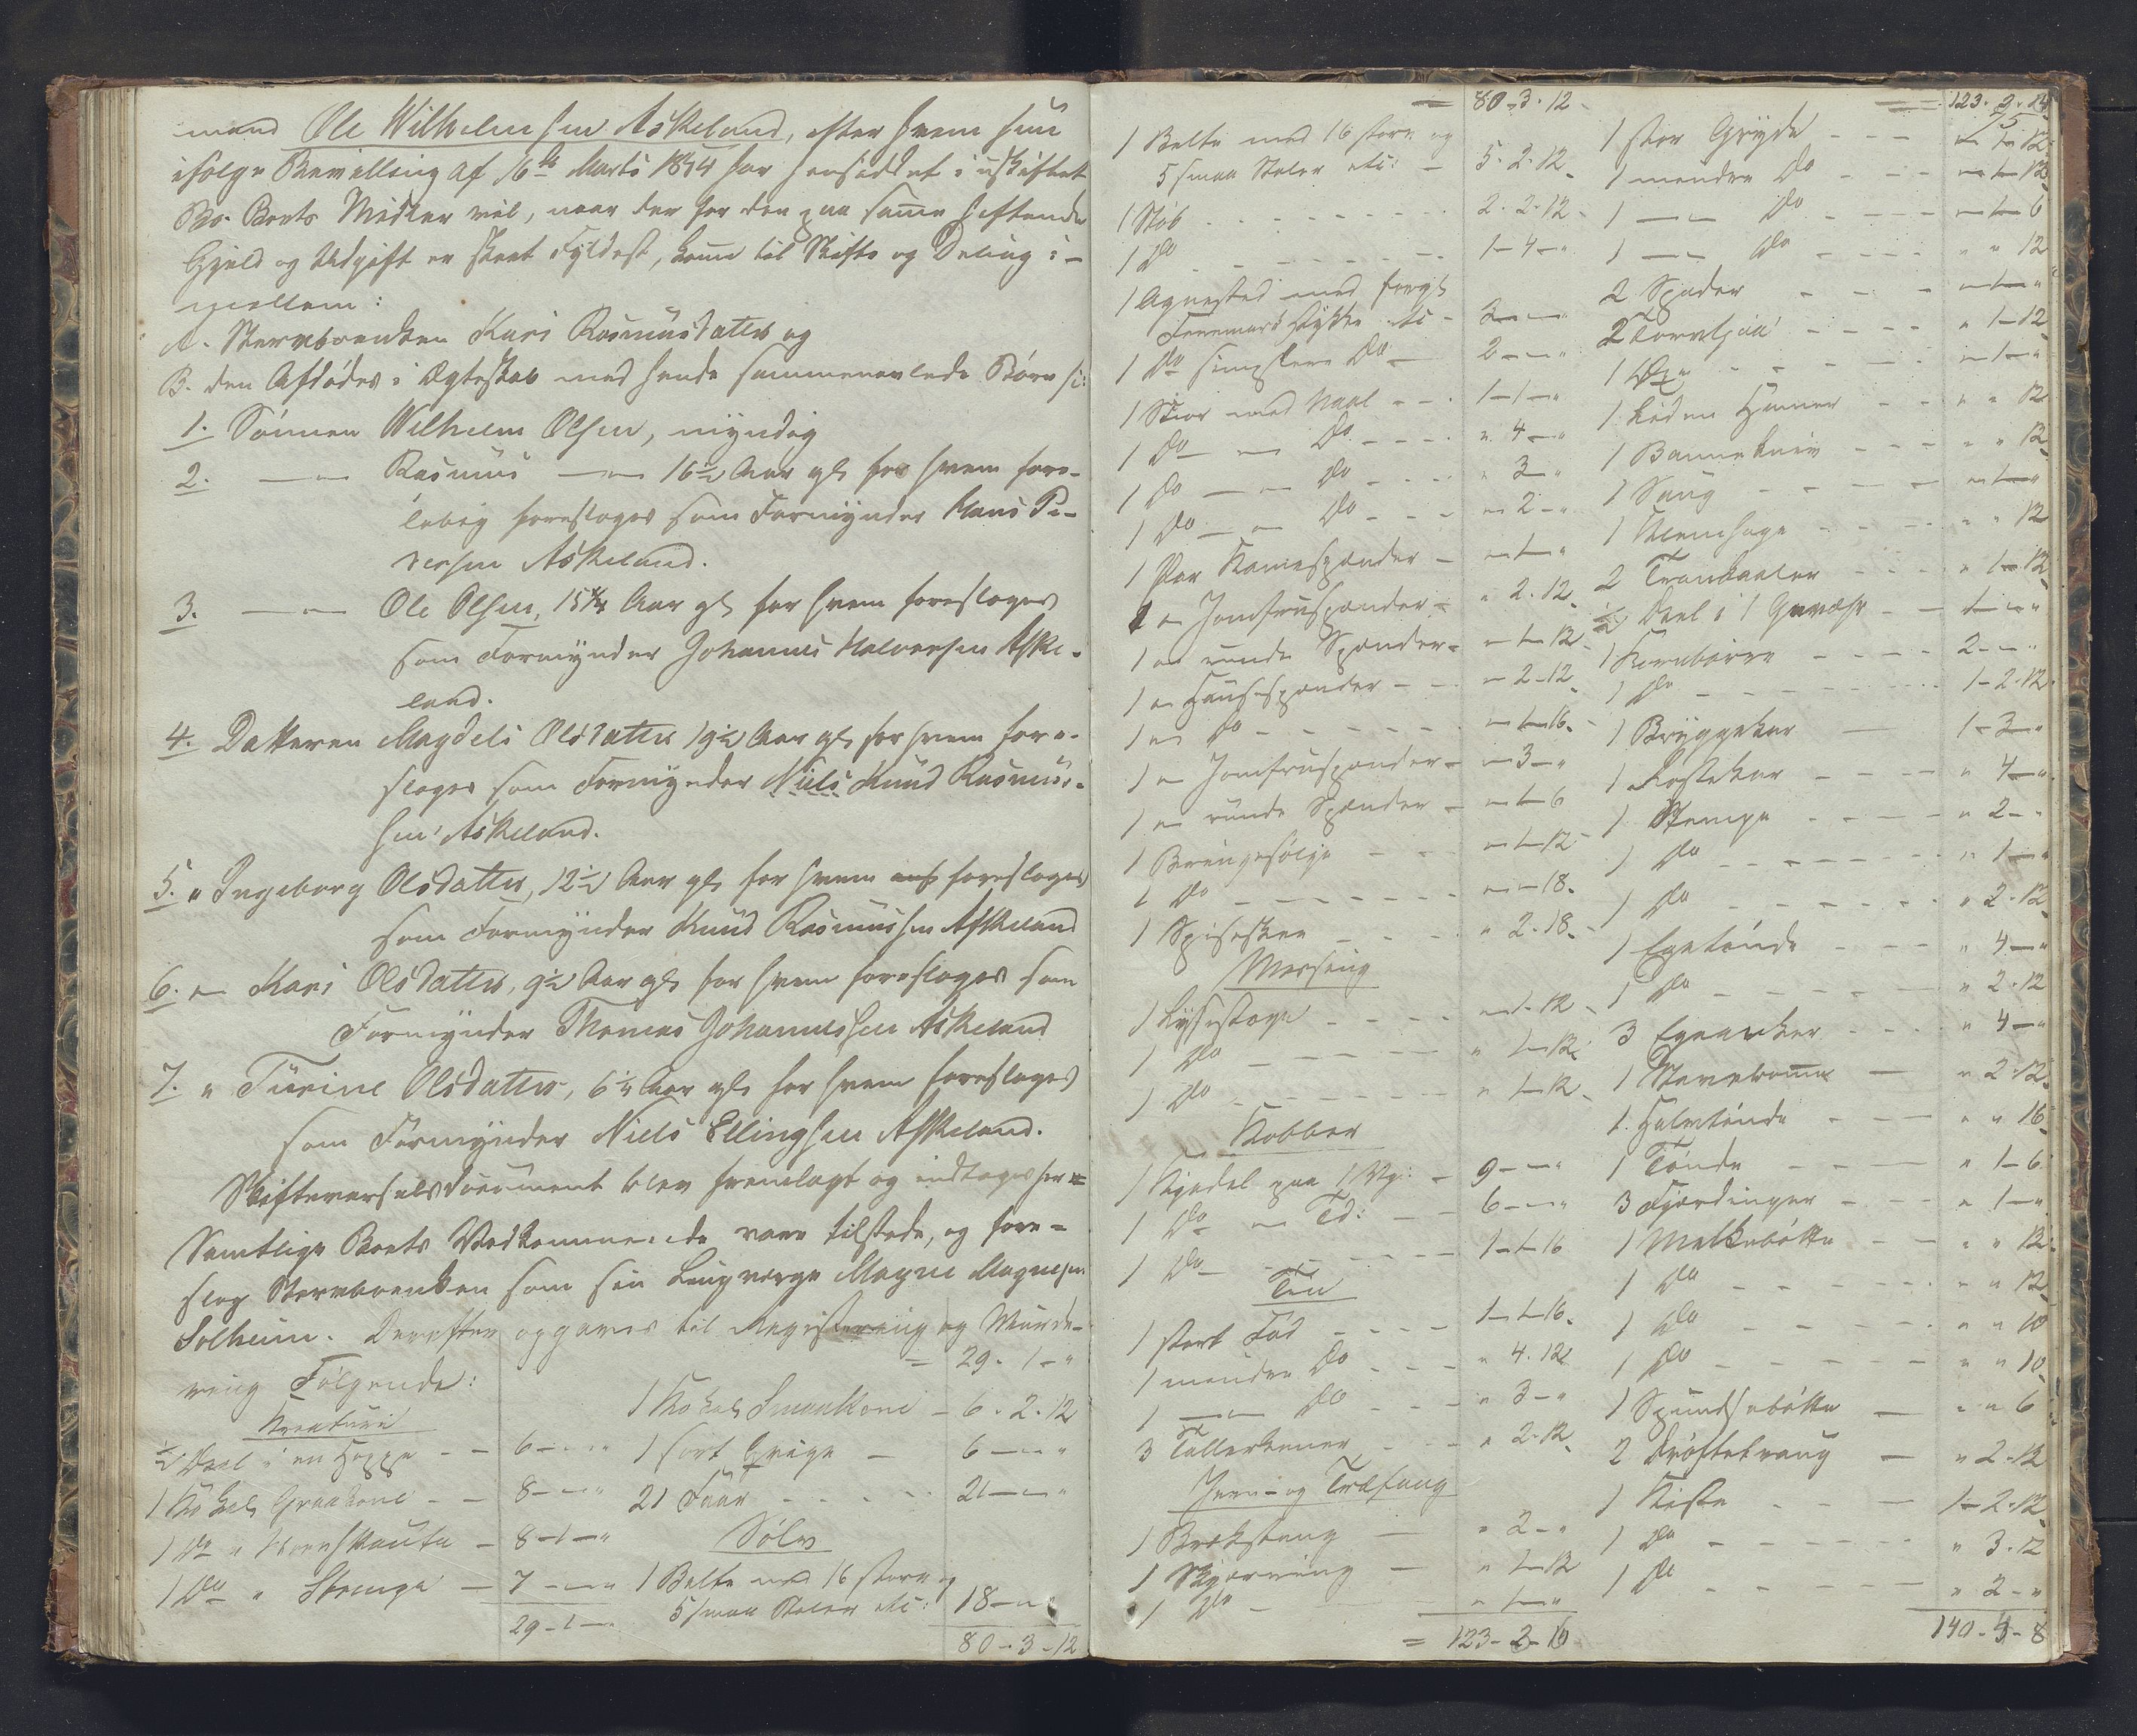 mand Ole Wilhelmsen Askeland, efter hvem hun
ifølge Bevilling af 16de Marts 1854 har hensiddet i uskiftet
Bo. Boets Midler vil, naar der for den paa samme heftende
Gjeld og Udgift er skeet Fyldest, komme til Skifte og Deling i-
mellem:
A. Sterboenken Kari Rasmusdatter og
B. den Afdødes i Ægteskab med hende sammenavlede Børn s:
1. Sønnen Wilhelm Olsen, myndig
2. —"— Rasmus —"— 16½ Aar gl, for hvem fore-
løbig foreslages som Formynder Hans
Askeland.
3. —"— Ole Olsen, 15 Aar gl, for hvem foreslages
som Formynder Johannes Halvorsen Aske-
land.
4. Datteren Magdeli Olsdatter Aar gl, for hvem fore-
slages som Formynder Niels Knud Rasmus-
sen Askeland.
5. " Ingeborg Olsdatter, 12½ Aar gl, for hvem foreslages
som Formynder Knud Rasmussen Askeland
6. " Kari Olsdatter, 9½ Aar gl, for hvem foreslages som
Formynder Thomas Johannessen Askeland
7. " Turine Olsdatter, 6½ Aar gl, for hvem foreslages
som Formynder Niels Ellingsen Askeland.
Skifteforseglsdocument blev fremlagt og indtages her =
Samtlige Boets Vedkommende vare tilstede, og fore-
slog Sterboenken som sin Laugværge Magne Magnesen
Solheim. Derefter opgaves til Registrering og Vurde-
ring Følgende:
Kreaturer
½ Deel i en Hoppe - - 6 - " - "
1 Ko kal Graakone - - 8 - " - "
1 Do " - 8 - 1 - "
1 Do " Stempe - 7 - " - "
29 - 1 - "
= 29 - 1 - "
1 Ko kal Smaakone - 6 - 2 - 12
1 sort Qvige - 6 - " - "
21 Faar - - - 21 - " - "
Sølv
1 Belte med 16 store og
5 smaa Støler etc: 18 - " - "
80 - 3 - 12
= 80 - 3 - 12
1 Belte med 16 store og
5 smaa Støler etc: - 5 - 2 - 12
1 Støb - - - 2 - 2 - 12
1 Do - - - 1 - 4 - "
1 Agnested med forgl
Stykke etc - 3 - " - "
1 Do simplere Do - 2 - " - "
1 med Naal - - 1 - 1 - "
1 Do —"— Do - - - " 4 - "
1 Do —"— Do - - - " 3 - "
1 Do —"— Do - - - " 2 - "
1 Par Spænder - " 1 - "
1 " Jomfruspænder - " 2 - 12
1 " runde Spænder - " 1 - 12
1 " Halsspænder - " 2 - 12
1 " Do - - - " 1 - 16
1 " Jomfruspænder - " 3 - "
1 " runde Spænder - " 1 - 6
1 Bringesølje - - " 1 - 12
1 Do - - - " " 18
1 Spiseskee - - - " 2 - 18
Messing
1 Lysestage - - - " 1 - 12
1 Do - - - " 1 - 12
1 Do - - - " 1 - 12
Kobber
1 Kjedel paa 1 Vg: - 9 - " - "
1 Do " Td: - - 6 - " - "
1 Do - - - 1 - 1 - 16
Tin
1 stort Fad - - - 1 - 1 - 16
1 mindre Do - - - " 4 - 12
1 —"— Do - - - " 3 - "
3 Tallerkener - - " 2 - 12
Jern- og Træfang
1 Brækstang - " 2 - "
1 Skjæreing - " 1 - 12
1 Do - " 1 - "
= 123 - 2 - 10
= 123 - 2 -
1 stor Gryde - - - " 1 - 12
1 mindre Do - - - " 1 - 12
1 —"— Do - - - " 1 - 6
1 —"— Do - - - " " 12
2 Spader - - - " 1 - "
2 - - - " 1 - 12
1 Øxe - - - " 1 - "
1 liden Hammer - - " " 12
1 Bannekniv - - - " " 12
1 Saug - - - " 1 - "
1 - - - " " 12
2 - - - " 1 - 12
½ Deel i 1 Gevæhr - - 1 - " - "
1 Kornbørre - - - 2 - " - "
1 Do - - - 1 - 2 - 12
1 Bryggekar - 1 - 3 - "
1 Rostekar - - - " 4 - "
1 Stempe - - - " 2 - "
1 Do - - - " 1 - "
1 Do - - - " 2 - 12
1 Egetønde - - - " 4 - "
1 Do - - - " 2 - 12
3 Egeanker - - - " 4 - "
1 - " 2 - 12
1 Halvtønde - - - " " 16
1 Tønde - - - " 1 - 6
3 Fjerdinger - - - " 1 - "
1 Melkebøtte - - " " 12
1 Do - - - " " 12
1 Do - - - " " 10
1 Do - - - " " 10
1 Spundsebøtte - " " 6
2 Drøftetraug - " 2 - 12
1 Kiste - - - 1 - 2 - 12
1 Do - - - " 3 - 12
1 Do - - - " 2 - "
140 - 4 - 8